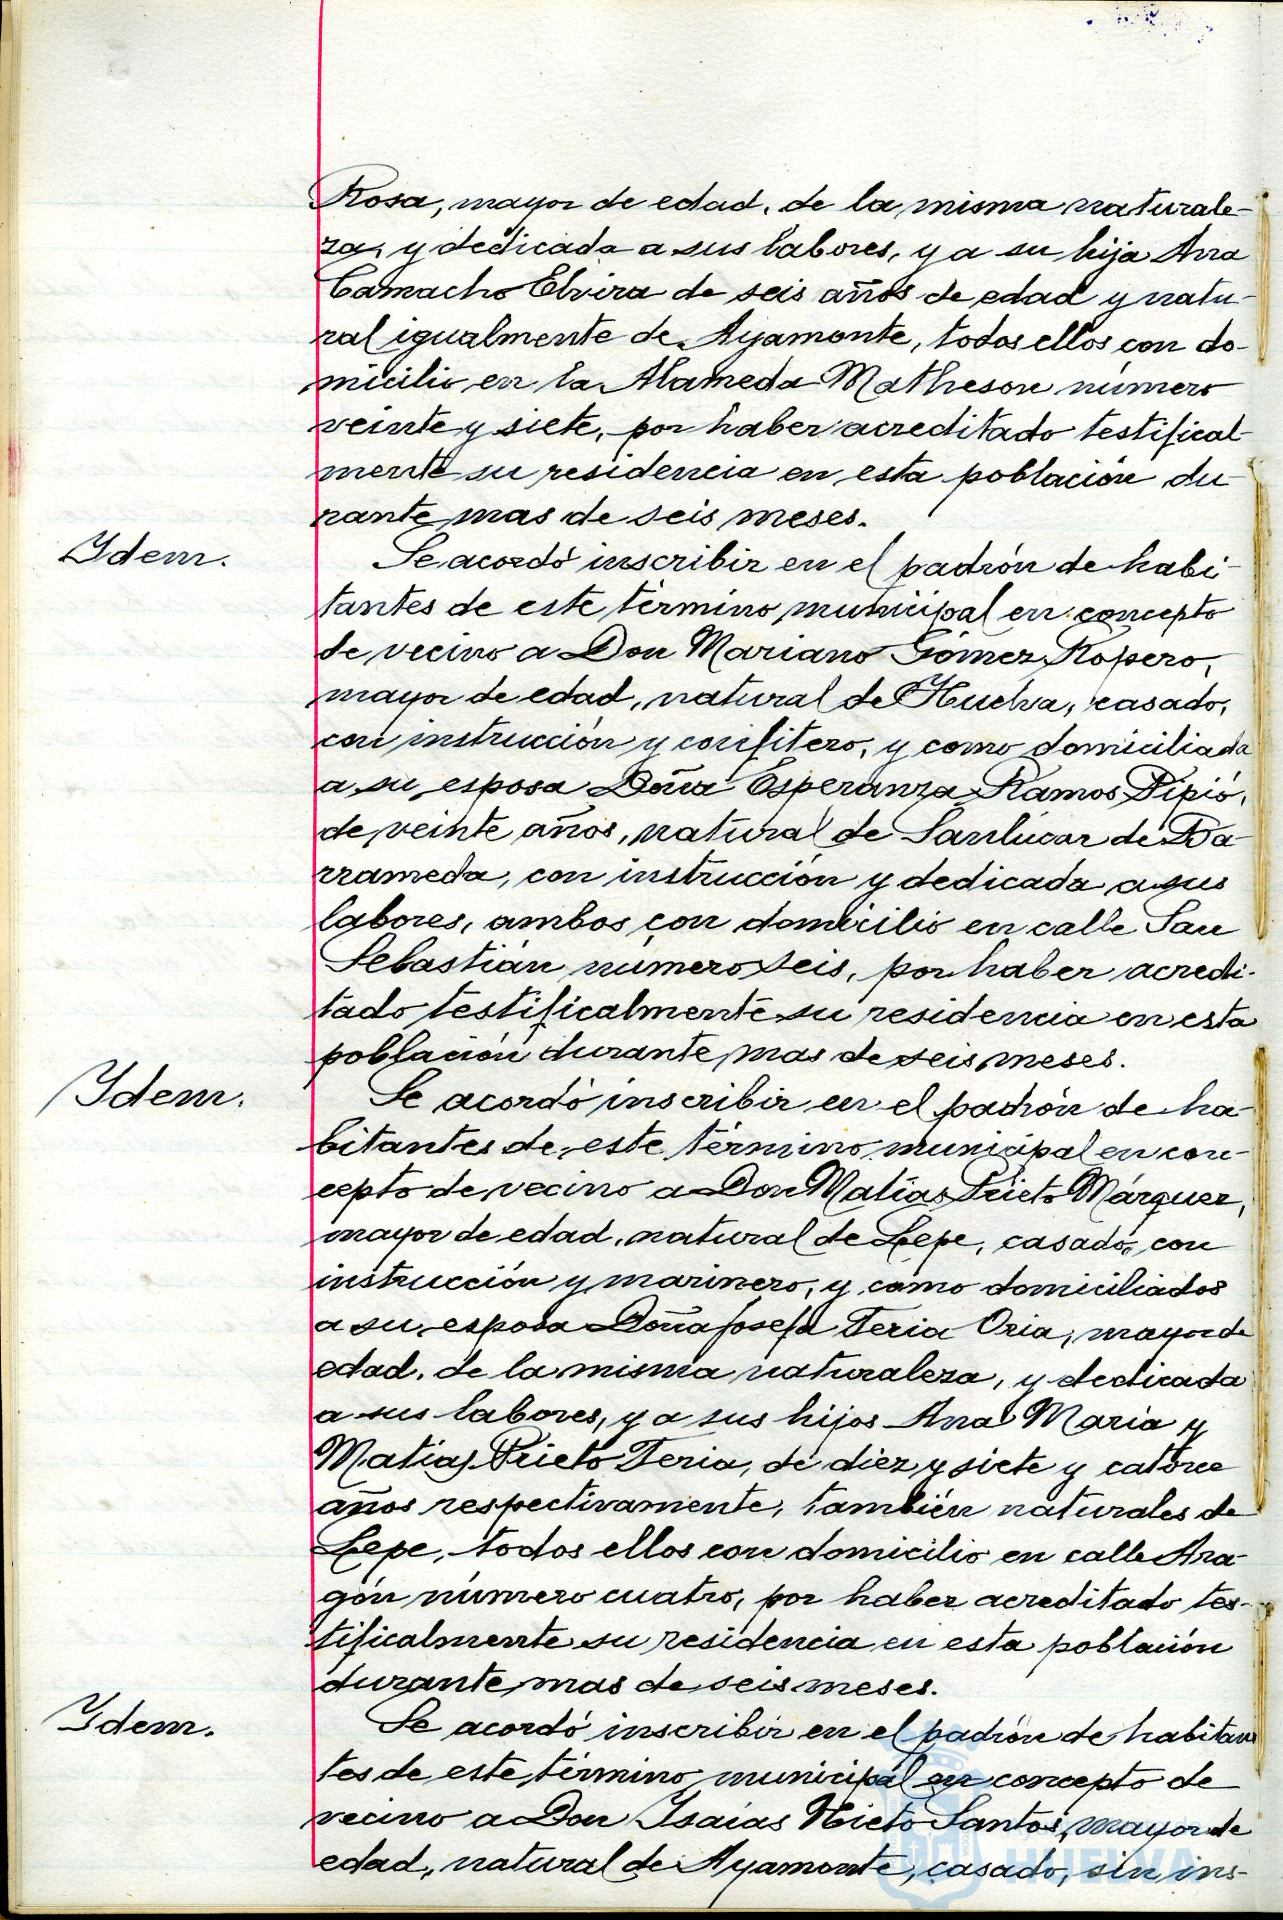 Rosa, mayor de edad, de la misma naturale-
za, y dedicada a sus labores, y a su hija Ana
Camacho Elvira de seis años de edad y natu-
ral igualmente de Ayamonte, todos ellos con do-
micilio en la Alameda Matheson número
veinte y siete, por haber acreditado testifical-
mente su residencia en esta población du-
rante mas de seis meses.
Idem.
Se acordó inscribir en el padrón de habi-
tantes de este término municipal en concepto
de vecino a Don Mariano Gómez Ropero,
mayor de edad, natural de Huelva, casado,
con instrucción y confitero, y como domiciliada
a su esposa Doña Esperanza Ramos Pipió,
de veinte años, natural de Sanlúcar de Ba-
rrameda, con instrucción y dedicada a sus
labores, ambos con domicilio en calle San
Sebastián número seis, por haber acredi-
tado testificalmente su residencia en esta
población durante mas de seis meses.
Idem.
Se acordó inscribir en el padrón de ha-
bitantes de este término municipal en con-
cepto de vecino a Don Matías Prieto Márquez,
mayor de edad, natural de Lepe, casado, con
instrucción y marinero, y como domiciliados
a su esposa Doña Josefa Feria Oria, mayor de
edad, de la misma naturaleza, y dedicada
a sus labores, y a sus hijos Ana Maria y
Matias Prieto Feria, de diez y siete y catorce
años respectivamente, también naturales de
Lepe, todos ellos con domicilio en calle Ara-
gón número cuatro, por haber acreditado tes-
tificalmente su residencia en esta población
durante mas de seis meses.
Idem.
Se acordó inscribir en el padrón de habitan
tes de este término municipal en concepto de
vecino a Don Isaías Nieto Santos, mayor de
edad, natural de Ayamonte, casado, sin ins-
HUELVA